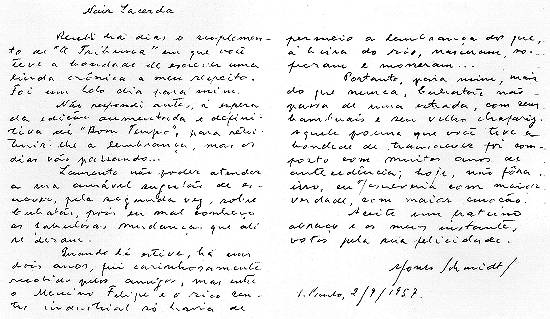 Nair Lacerda
Recebi há dias o suplemen-
to de "A Tribuna" em que você
teve a bondade de escrever uma
linda crônica a meu respeito.
Foi um belo dia para mim.
Não respondi antes, à espera
da edição aumentada e defini-
tiva de "Bom Tempo", para retri-
buir-lhe a lembrança, mas os
dias vão passando...
Lamento não poder atender
a sua amável sugestão de es-
crever, pela segunda vez, sobre
Cubatão, pois eu mal conheço
as fabulosas mudanças que ali
se deram.
Quando lá estive, há uns
dois anos, fui carinhosamente
recebido pelos amigos, mas entre
o Menino Felipe e o rico cen-
tro industrial só havia de
permeio a lembrança dos que,
à beira do rio, nasceram, so-
freram e morreram...
Portanto, para mim, mais
do que nunca, Cubatão não
passa de uma estrada, com seus
bambuais e seu velho chafariz.
Aquele poema que você teve a
bondade de transcrever foi com-
posto com muitos anos de
antecedência; hoje, não fôra
isso, eu escreveria com maior
verdade, com maior emoção.
Aceite um fraterno
abraço e os meus constantes
votos pela sua felicidade.
Afonso Schmidt
S. Paulo, 2/9/1957.